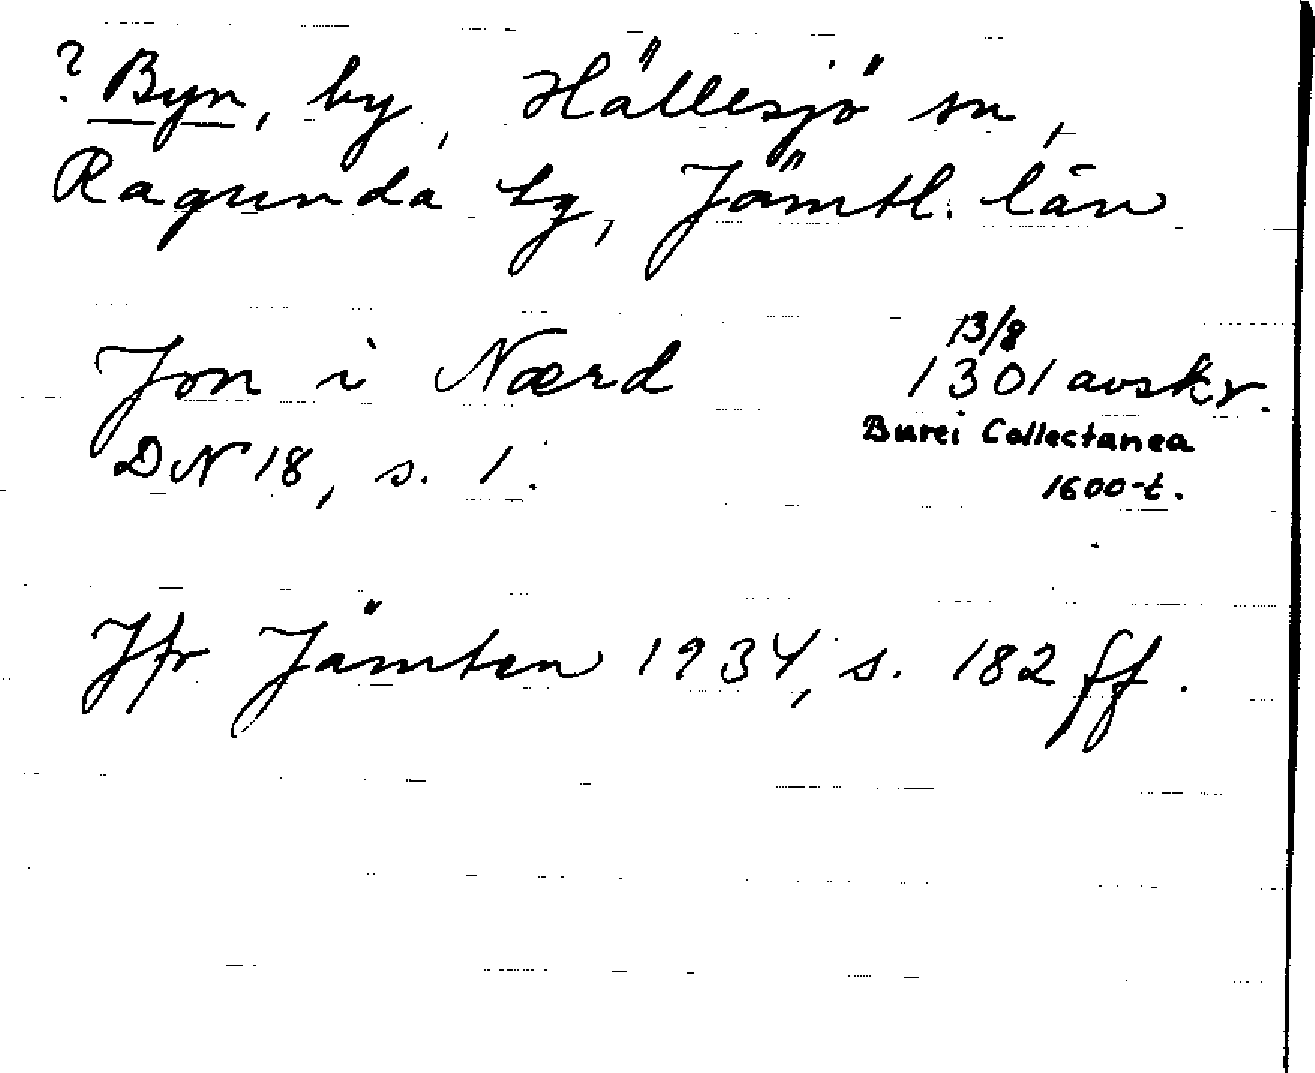 ? Byn, by, Hällesjö sn,
Ragunda tg, Jämtl. län
Jon i Nærd
13/8
1301 avskr.
Burei Collectanea
1600-t.
DN 18, s. 1.
Jfr Jämten 1934, s. 182 ff.